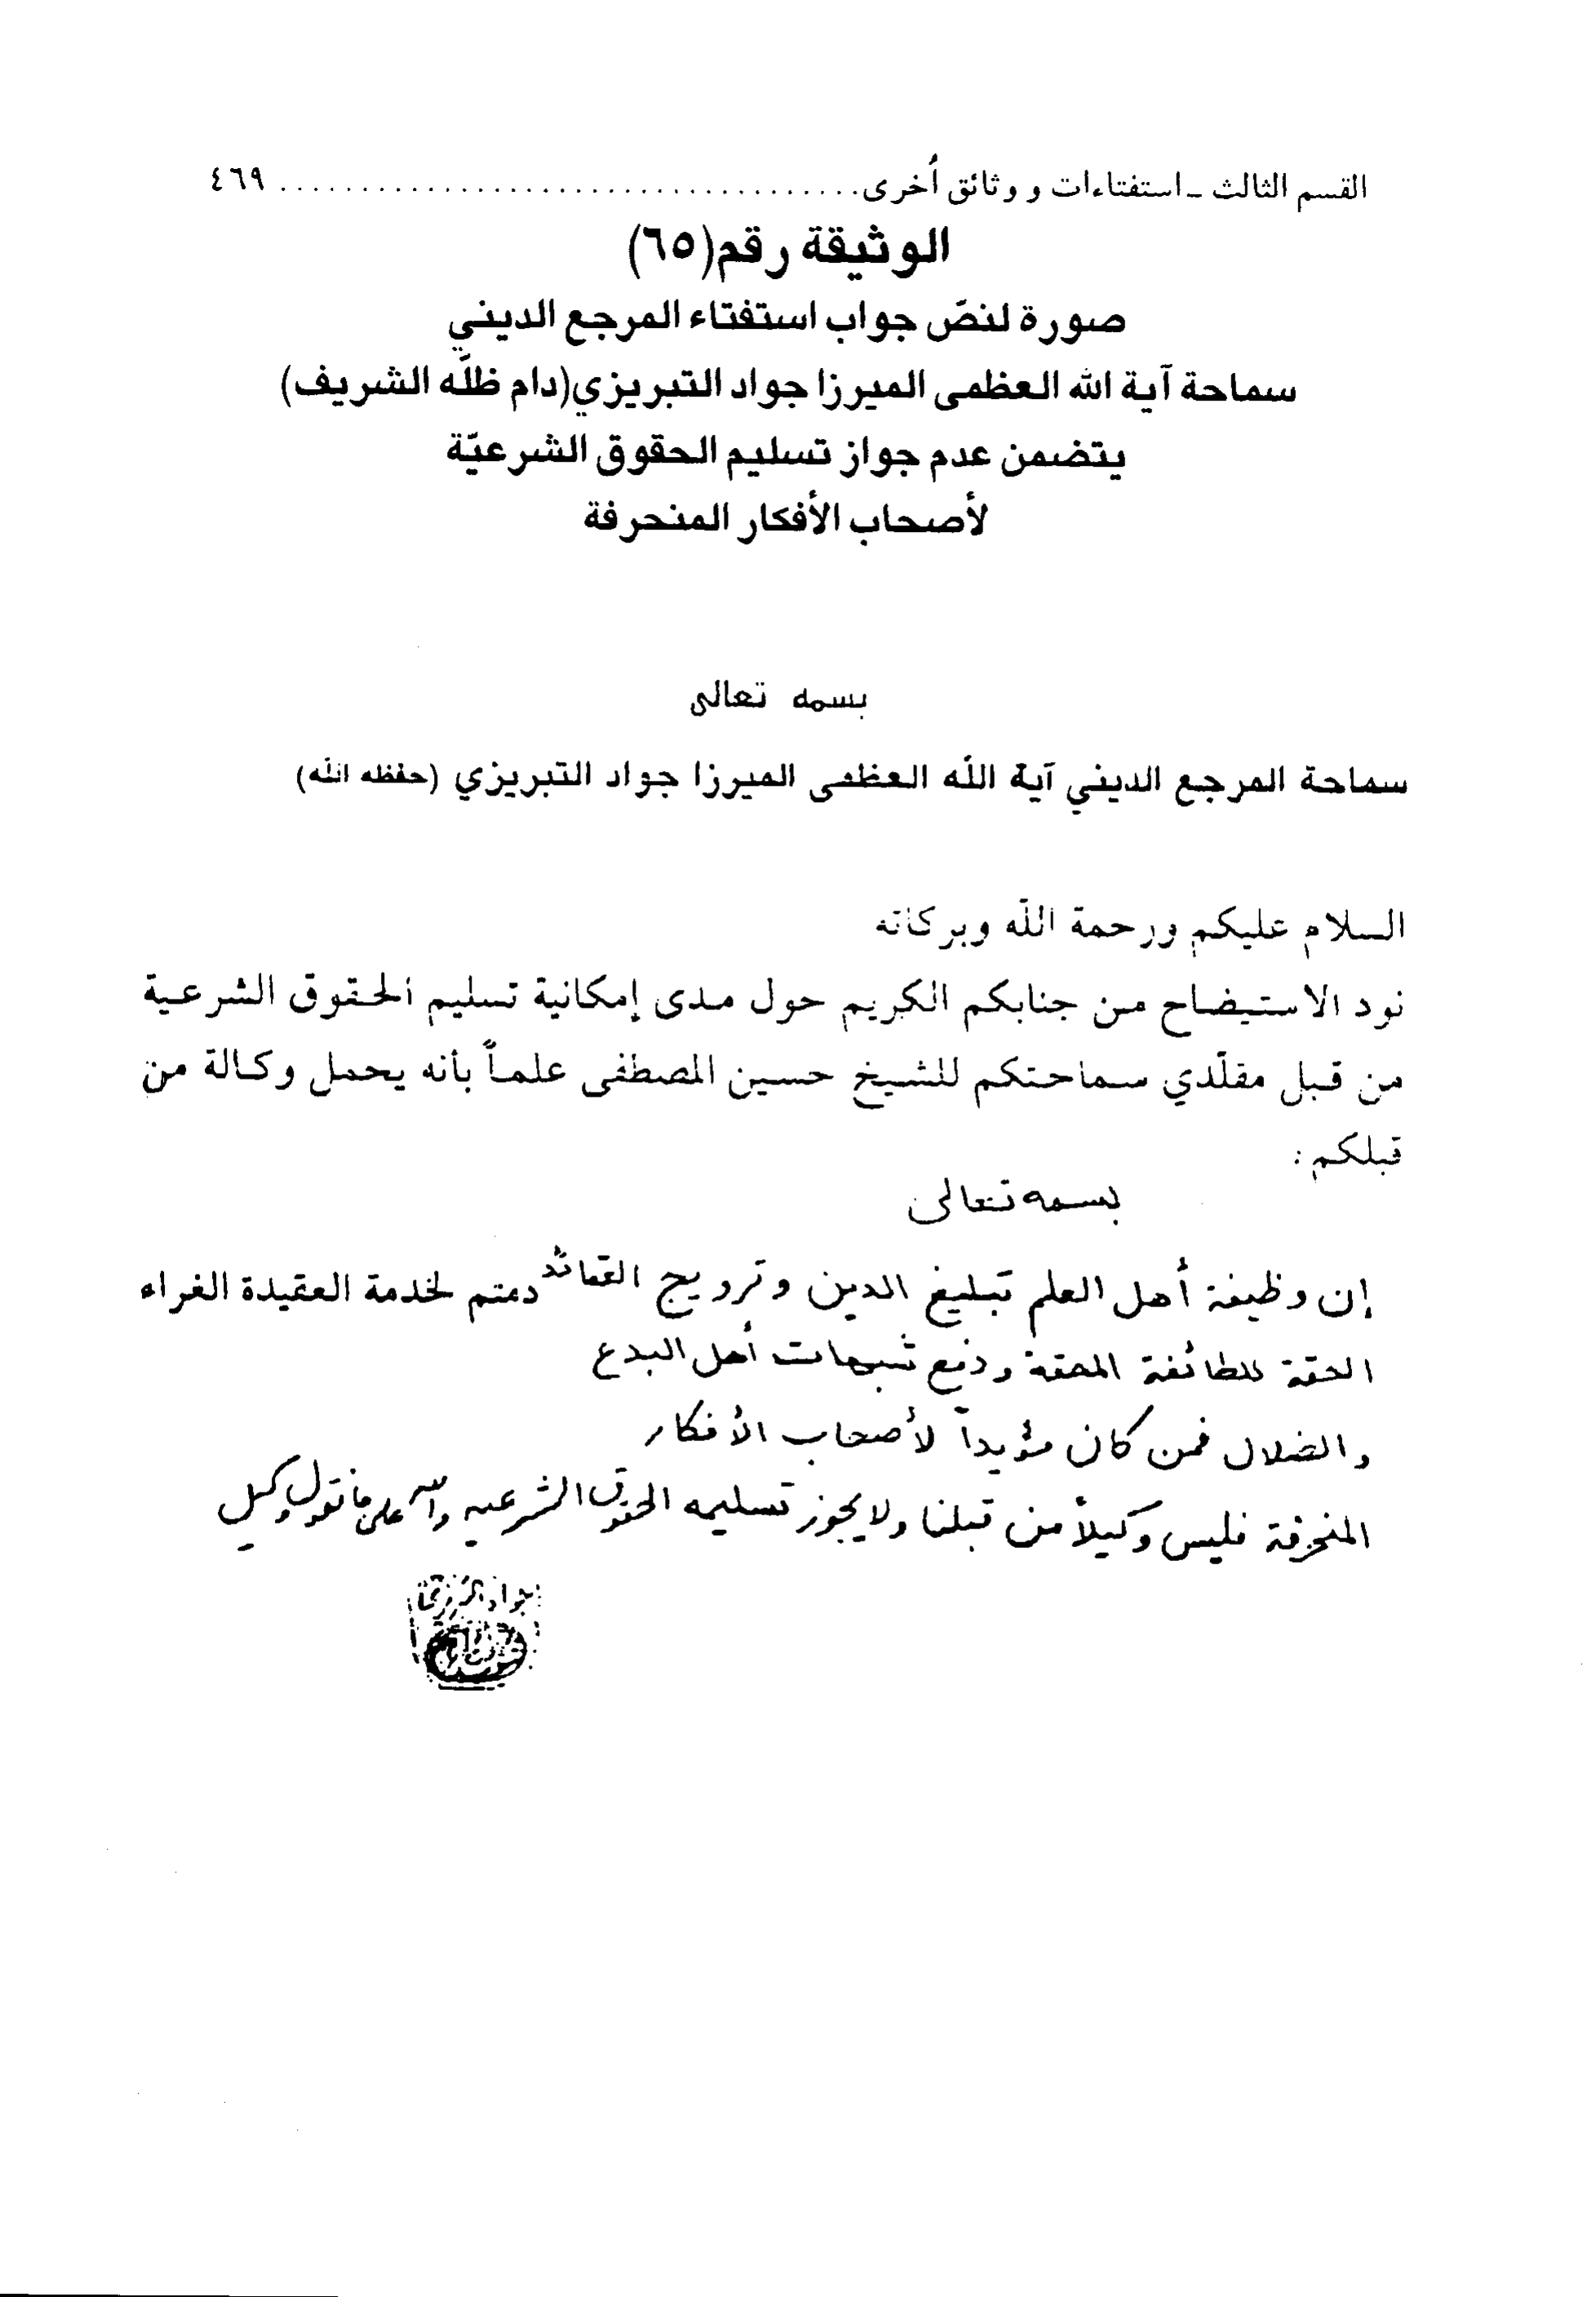 القسم الثالث ـ استفتاءات و وثائق أُخرى.................................. ٤٦٩
الوثيقة رقم(٦٥)
صورة لنصّ جواب استفتاء المرجع الديني
سماحة آية الله العظمى الميرزا جواد التبريزي(دام ظلّه الشريف)
يتضمن عدم جواز تسليم الحقوق الشرعيّة
لأصحاب الأفكار المنحرفة
بسمه تعالى
سماحة المرجع الديني آية الله العظمى الميرزا جواد التبريزي (حفظه الله)
السلام عليكم ورحمة الله وبركاته
نود الاستيضاح من جنابكم الكريم حول مدى إمكانية تسليم الحقوق الشرعية
من قبل مقلّدي سماحتكم للشيخ حسين المصطفى علماً بأنه يحمل وكالة من
قبلكم :
بسمه تعالى
إن وظيفة أهل العلم تبليغ الدين وترويج العقائد دمتم لخدمة العقيدة الغراء
الحقة للطائفة المحقة ودفع شبهات أهل البدع
والضلال فمن كان مؤيداً لأصحاب الأفكار
المنحرفة فليس وكيلاً من قبلنا ولا يجوز تسليمه الحقوق الشرعيه والله على ما نقول وكيل
جواد